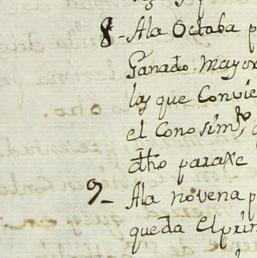 8 - Ala Octaba p
Ganado Mayor
las que Convie
el Conosim.to
dho paraxe
9 - Ala novena p
queda El prin